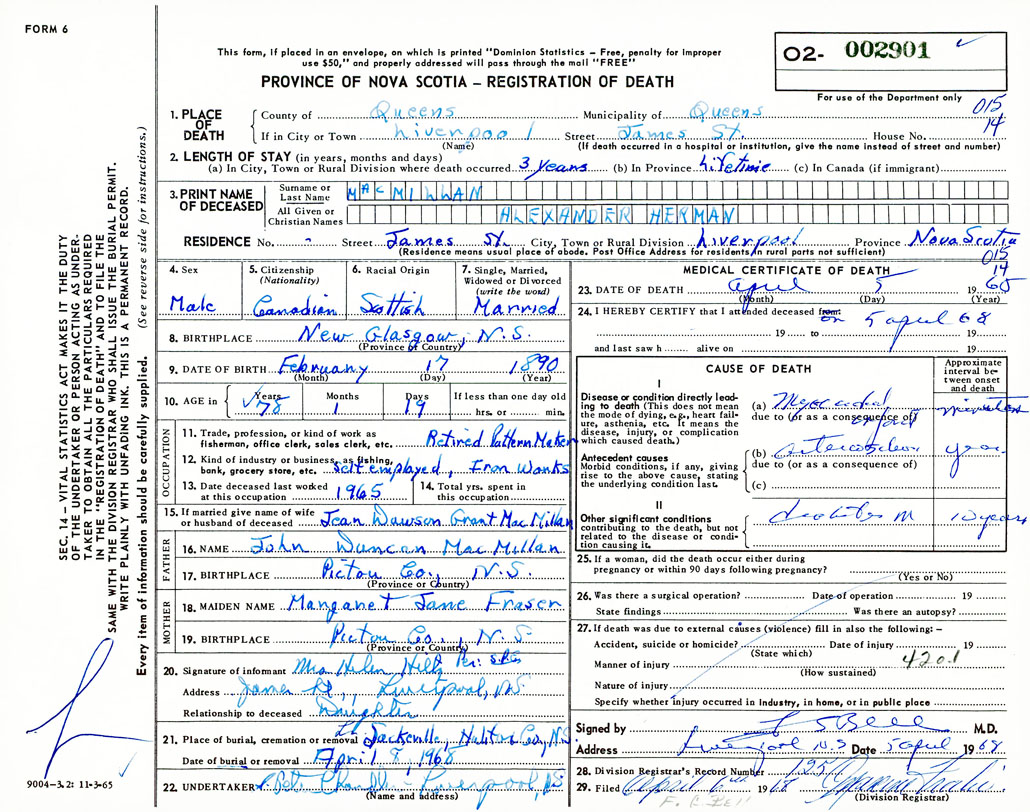 FORM 6
This form, if placed in an envelope, on which is printed "Dominion Statistics – Free, penalty for improper
use $50," and properly addressed will pass through the mail "FREE"
PROVINCE OF NOVA SCOTIA – REGISTRATION OF DEATH
O2- 002901
For use of the Department only
015
14
1. PLACE OF DEATH
County of Queens Municipality of Queens
If in City or Town Liverpool Street James St. House No.
(Name) (If death occurred in a hospital or institution, give the name instead of street and number)
2. LENGTH OF STAY (in years, months and days)
(a) In City, Town or Rural Division where death occurred 3 years (b) In Province Lifetime (c) In Canada (if immigrant)
3. PRINT NAME OF DECEASED
Surname or Last Name MACMILLAN
All Given or Christian Names ALEXANDER HERMAN
RESIDENCE No. - Street James St. City, Town or Rural Division Liverpool Province Nova Scotia
(Residence means usual place of abode. Post Office Address for residents in rural parts not sufficient)
015
14
4. Sex
Male
5. Citizenship (Nationality)
Canadian
6. Racial Origin
Scottish
7. Single, Married, Widowed or Divorced (write the word)
Married
8. BIRTHPLACE New Glasgow, N.S.
(Province or Country)
9. DATE OF BIRTH February 17 1890
(Month) (Day) (Year)
10. AGE in Years 78 Months 1 Days 19 If less than one day old hrs. or min.
OCCUPATION
11. Trade, profession, or kind of work as
fisherman, office clerk, sales clerk, etc. Retired Pattern Maker
12. Kind of industry or business, as fishing,
bank, grocery store, etc. Self employed, Iron Works
13. Date deceased last worked
at this occupation 1965
14. Total yrs. spent in
this occupation
15. If married give name of wife
or husband of deceased Jean Dawson Grant MacMillan
FATHER
16. NAME John Duncan MacMillan
17. BIRTHPLACE Pictou Co., N.S.
(Province or Country)
MOTHER
18. MAIDEN NAME Margaret Jane Fraser
19. BIRTHPLACE Pictou Co., N.S.
(Province or Country)
20. Signature of informant Mrs Helen Per:
Address James St., Liverpool, NS
Relationship to deceased Daughter
21. Place of burial, cremation or removal Sackville, Co., N.S.
Date of burial or removal April 8, 1968
22. UNDERTAKER Chandler Liverpool, NS
(Name and address)
MEDICAL CERTIFICATE OF DEATH
23. DATE OF DEATH April 5 1968
(Month) (Day) (Year)
24. I HEREBY CERTIFY that I attended deceased from: on 5 april 68
19 to 19
and last saw h alive on 19
CAUSE OF DEATH
Approximate interval between onset and death
I
Disease or condition directly leading to death (This does not
mean the mode of dying, e.g., heart failure, asthenia, etc. It means the
disease, injury, or complication which caused death.)
(a) Myocardial minutes
due to (or as a consequence of)
Antecedent causes
Morbid conditions, if any, giving
rise to the above cause, stating
the underlying condition last.
(b)
due to (or as a consequence of)
(c)
II
Other significant conditions
contributing to the death, but not
related to the disease or condition causing it.
diabetes m 10 years
25. If a woman, did the death occur either during
pregnancy or within 90 days following pregnancy?
(Yes or No)
26. Was there a surgical operation? Date of operation 19
State findings Was there an autopsy?
27. If death was due to external causes (violence) fill in also the following: –
Accident, suicide or homicide? Date of injury 19
(State which)
Manner of injury 420.1
(How sustained)
Nature of injury
Specify whether injury occurred in industry, in home, or in public place
Signed by Bell M.D.
Address Liverpool N.S Date 5 april 1968
28. Division Registrar's Record Number 125
29. Filed April 6th 1968
(Division Registrar)
F. C. Bell
SEC. 14 – VITAL STATISTICS ACT MAKES IT THE DUTY
OF THE UNDERTAKER OR PERSON ACTING AS UNDERTAKER TO OBTAIN ALL THE PARTICULARS REQUIRED
IN THE "REGISTRATION OF DEATH" AND TO FILE THE
SAME WITH THE DIVISION REGISTRAR WHO SHALL ISSUE THE BURIAL PERMIT.
WRITE PLAINLY WITH UNFADING INK. THIS IS A PERMANENT RECORD.
Every item of information should be carefully supplied. (See reverse side for instructions.)
9004-3.2: 11-3-65